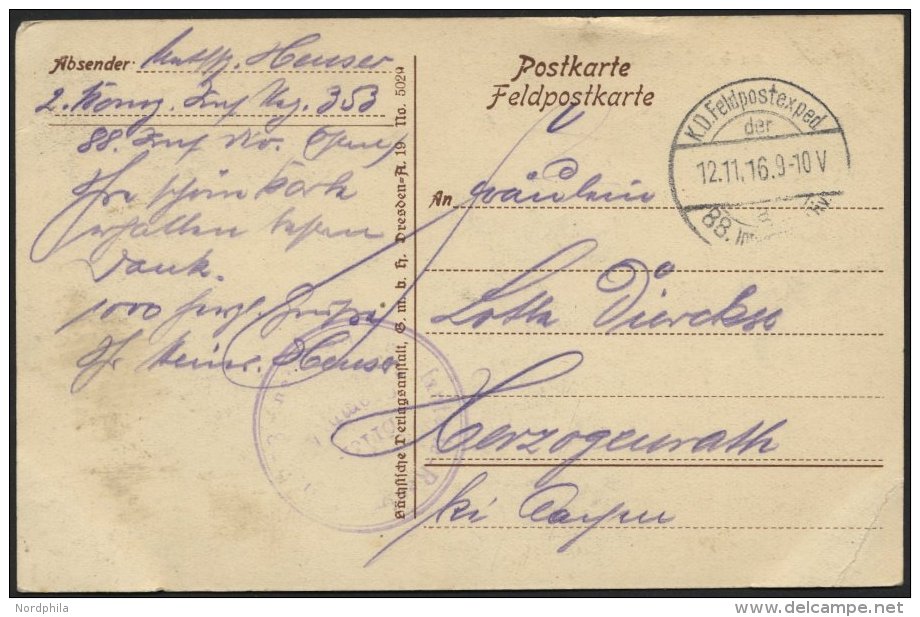 Absender: Heuser
2. Komp. Inf. Reg. 353
88. Inf. Div.
Ihre schöne Karte
erhalten besten
Dank.
1000 herzl. Grüße
Ihr Heinr. Heuser
Sächsische Verlagsanstalt, G. m. b. H. Dresden-A. 19 No. 5029
Postkarte
Feldpostkarte
K.D. Feldpostexped.
der
12.11.16.9-10 V
88. Inf
An Fräulein
Lotte Dierckse
Herzogenrath
bei Aachen
Nordphila
delcampe.net